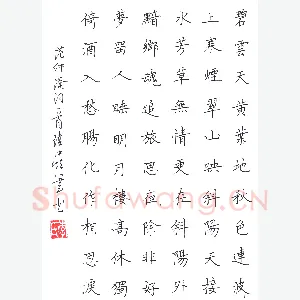 碧雲天黄葉地秋色連波
上寒煙翠山映斜陽天接
水芳草無情更在斜陽外
黯鄉魂追旅思除非好
夢留人睡明月樓高休獨
倚酒入愁腸化作相思淚
范仲淹詞一首
Shufawang.CN